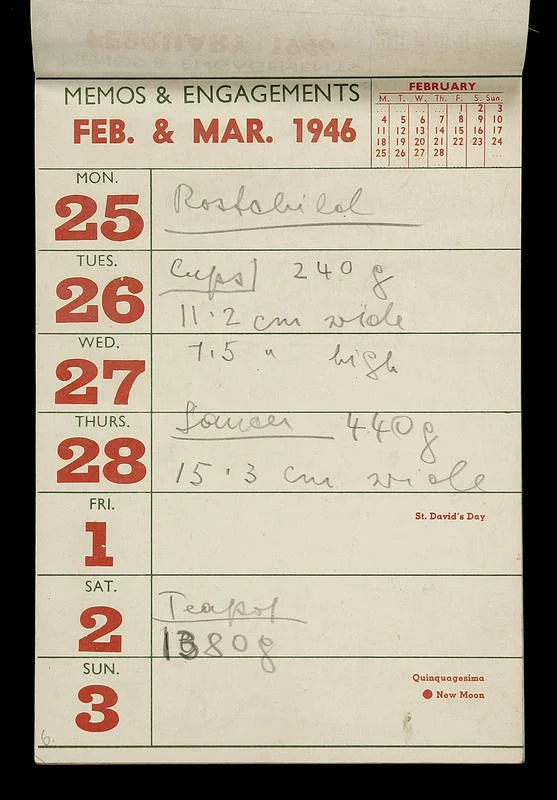 MEMOS & ENGAGEMENTS
FEB. & MAR. 1946
FEBRUARY
M. T. W. Th. F. S. Sun.
1 2 3
4 5 6 7 8 9 10
11 12 13 14 15 16 17
18 19 20 21 22 23 24
25 26 27 28
MON.
25
Rostchild
TUES.
26
Cups 240 g
11.2 cm wide
WED.
27
7.5 " high
THURS.
28
Saucer 440g
15.3 cm wide
FRI.
1
St. David's Day
SAT.
2
Teapot
1380g
SUN.
3
Quinquagesima
New Moon
6.